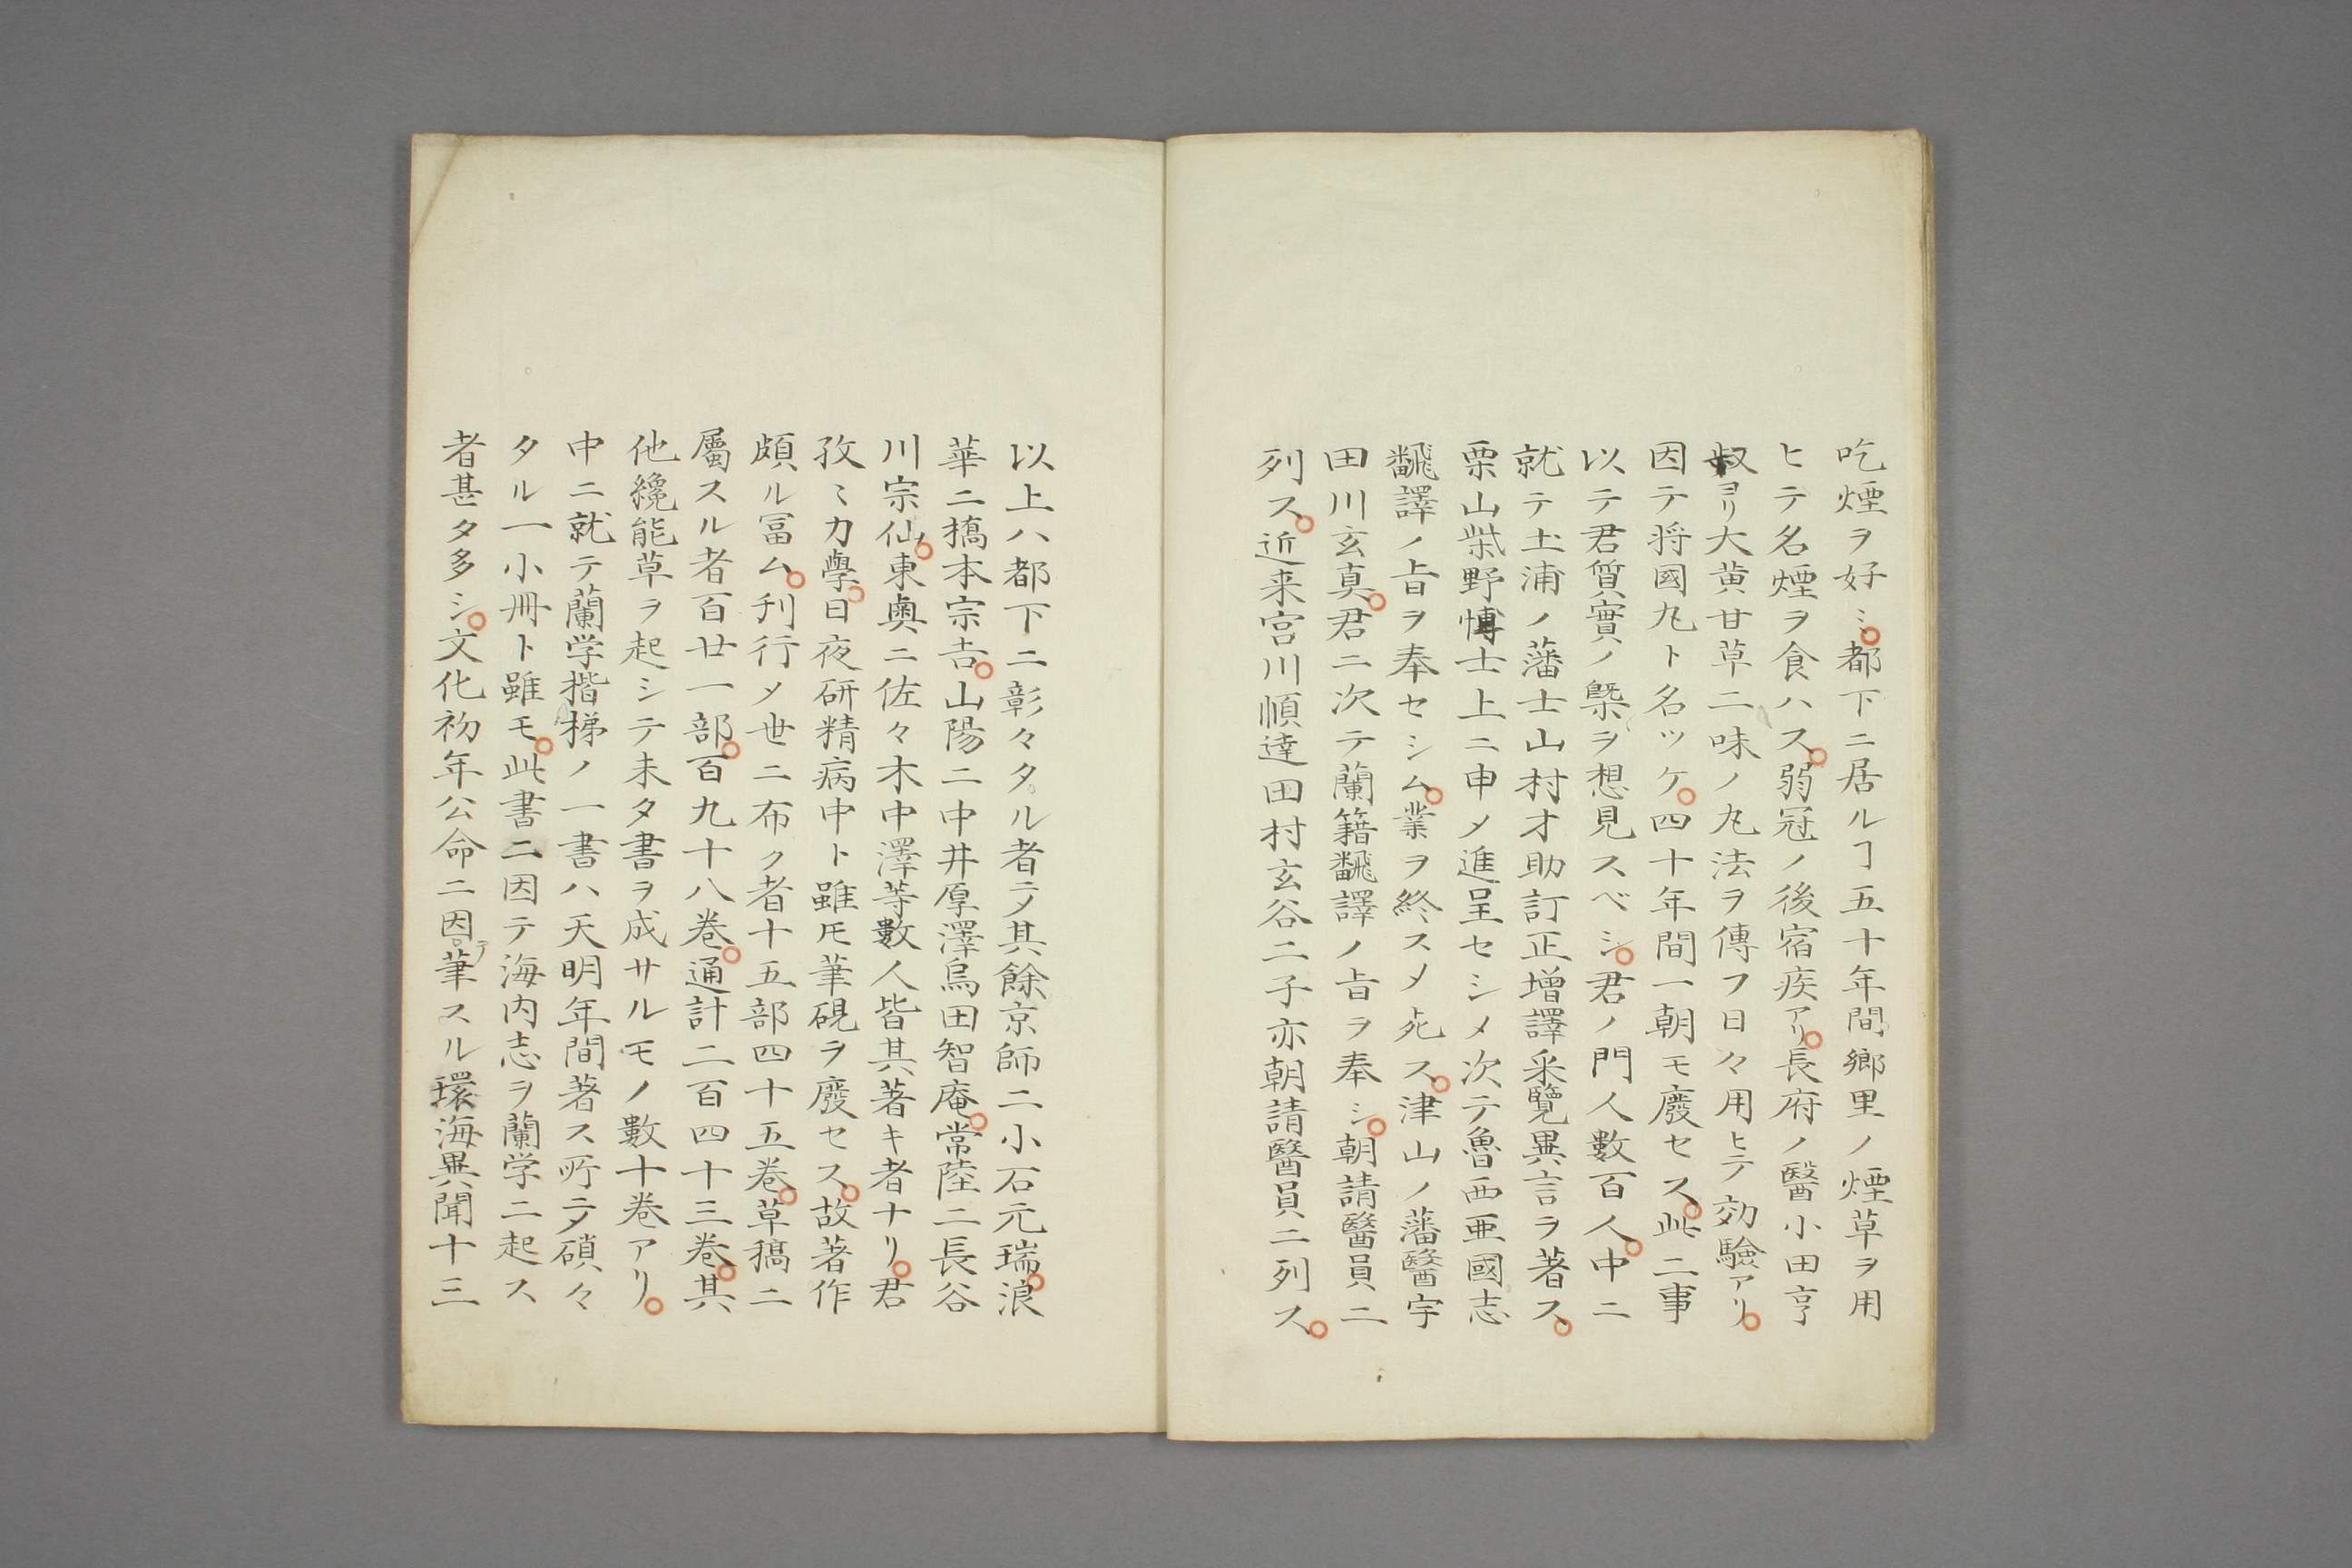 吃煙ヲ好ミ。都下ニ居ルヿ五十年間鄉里ノ煙草ヲ用
ヒテ名煙ヲ食ハス。弱冠ノ後宿疾アリ。長府ノ醫小田亨
叔ヨリ大黄甘草二味ノ丸法ヲ傳フ日々用ヒテ効驗アリ。
因テ将國丸ト名ツケ。四十年間一朝モ廢セス。此二事
以テ君質實ノ槩ヲ想見スベシ。君ノ門人數百人。中ニ
就テ土浦ノ藩士山村才助訂正增譯采覽異言ヲ著ス。
栗山柴野博士上ニ申メ進呈セシメ次テ魯西亜國志
飜譯ノ旨ヲ奉セシム。業ヲ終スメ死ス。津山ノ藩醫宇
田川玄真。君ニ次テ蘭籍飜譯ノ旨ヲ奉シ。朝請醫員ニ
列ス。近来宮川順達田村玄谷二子亦朝請醫員ニ列ス。
以上ハ都下ニ彰々タル者ニメ其餘京師ニ小石元瑞。浪
華ニ橋本宗吉。山陽ニ中井厚澤烏田智庵。常陸ニ長谷
川宗仙。東奧ニ佐々木中澤等數人皆其著キ者ナリ。君
孜〻力學。日夜研精病中ト雖モ筆硯ヲ廢セス。故著作
頗ル冨ム。刊行メ世ニ布ク者十五部四十五卷。草稿ニ
屬スル者百廿一部。百九十八卷。通計二百四十三卷。其
他纔能草ヲ起シテ未タ書ヲ成サルモノ數十卷アリ。
中ニ就テ蘭学揩梯ノ一書ハ天明年間著ス所ニメ碩々
タル一小冊ト雖モ。此書ニ因テ海内志ヲ蘭学ニ起ス
者甚タ多シ。文化初年公命ニ因テ筆スル環海異聞十三